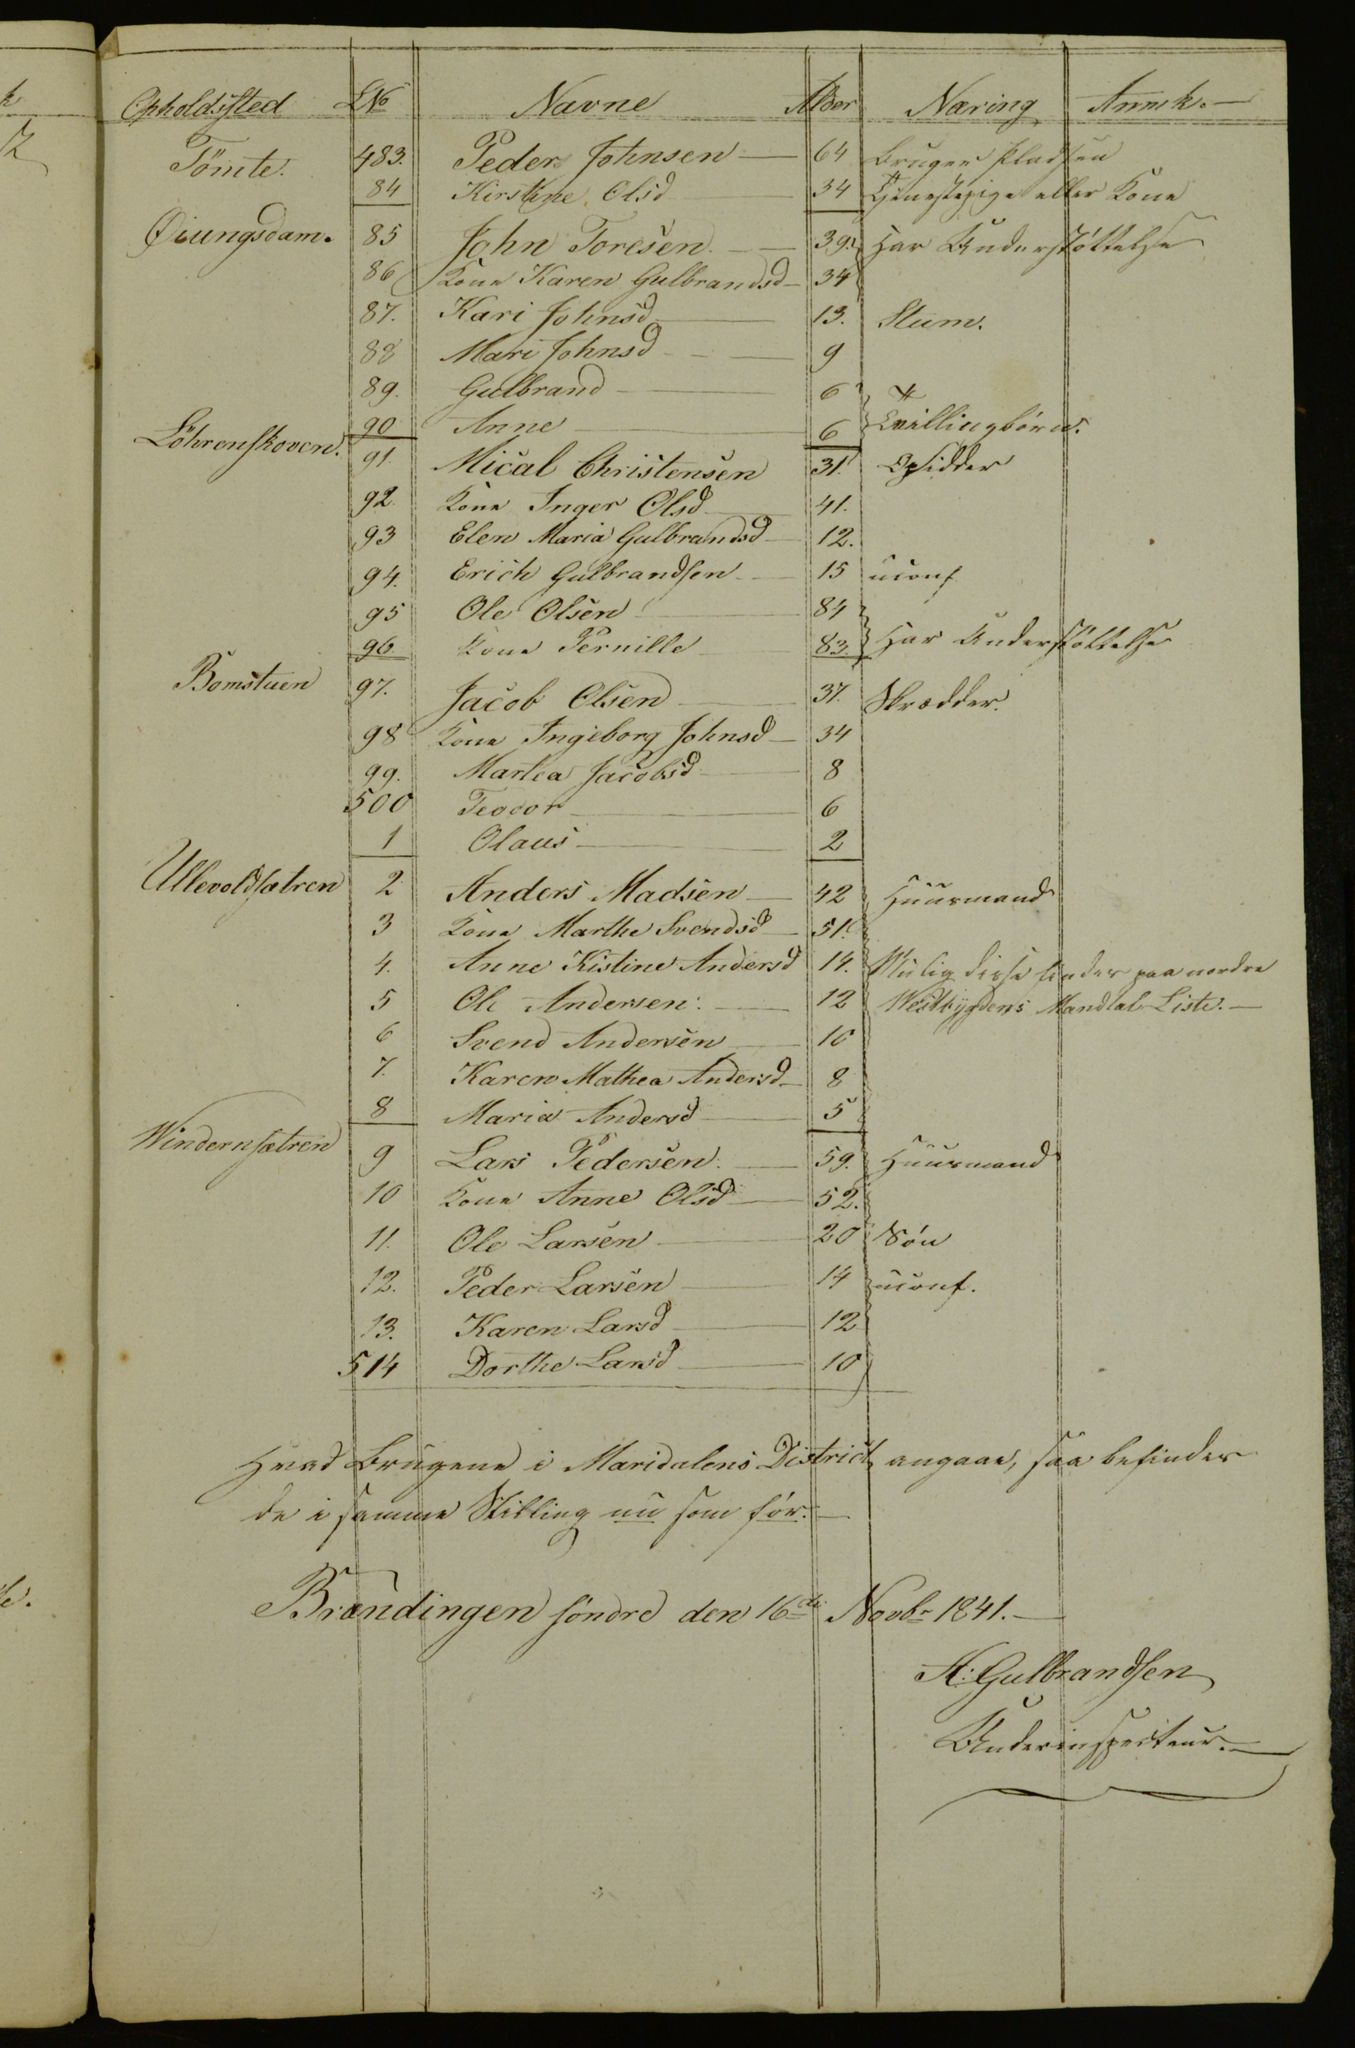 Opholdssted LNo Navne Alder Næring Anmk.
Tömte. 483. Peder Johnsen 64 bruger Pladsen
84 Kirstine Olsd 34 Tjenestepige eller Kone
Øiungsdam. 85 John Toresen 39. Har Understøttelse
86 Kone Karen Gulbrandsd 34
87. Kari Johnsd 13. Stum.
88 Mari Johnsd 9
89. Gulbrand 6
90 Anne 6 Tvillingbörn.
Löhrenskoven. 91. Mical Christensen 31. Opsidder
92. Kone Inger Olsd 41.
93 Elen Maria Gulbrandsd 12.
94. Erich Gulbrandsen 15 uconf
95 Ole Olsen 84
96. Kone Pernille 83. Har Understøttelse
Bomstuen 97. Jacob Olsen 37. Skrædder.
98 Kone Ingeborg Johnsd 34
99. Martea Jacobsd 8
500 Teodor 6
1 Olaus 2
Ullevoldsætren 2 Anders Madsen 42 Huusmand
3 Kone Marthe Svendsd 51.
4. Anne Kistine Andersd 14. Mulig disse findes paa nordre
5 Ole Andersen 12 Westbygdens Mandtal Liste.
6 Svend Andersen 10
7. Karen Mathea Andersd 8
8 Maria Andersd 5
Windernsætren 9 Lars Pedersen 59. Huusmand
10 Kone Anne Olsd 52.
11. Ole Larsen 20 Sön
12. Peder Larsen 14 uconf.
13. Karen Larsd 12
514 Dorthe Larsd 10
Hvad Brugene i Maridalens District angaae, saa befindes
de i samme Stilling nu som før.
Brændingen söndre den 16de Novbr 1841.
A: Gulbrandsen
Underinspecteur.